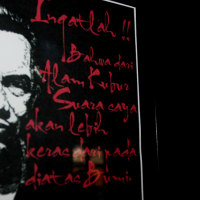 Ingatlah !!
Bahwa dari
Alam Kubur
Suara saya
akan lebih
keras dari pada
diatas Bumi